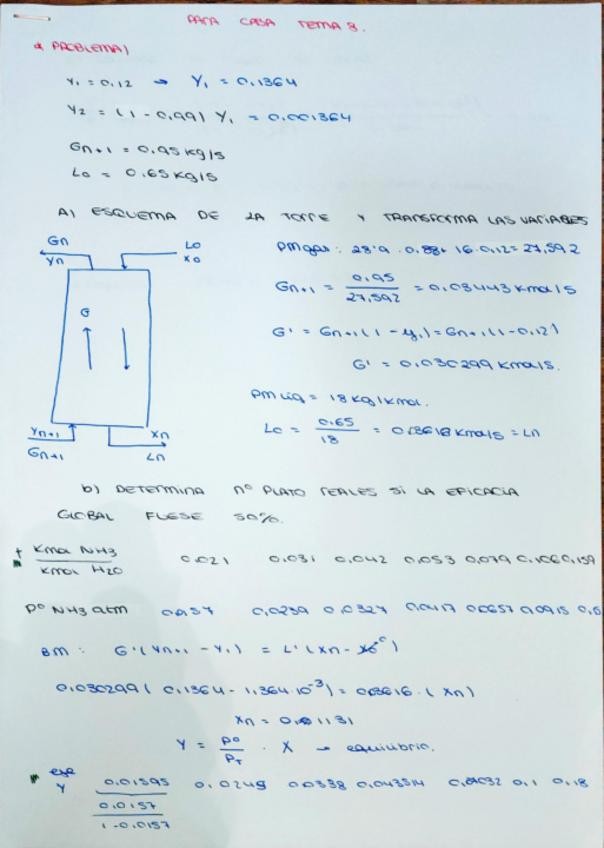 PARA CASA TEMA 3.
* PROBLEMA 1
Y1 = 0,12 → Y1 = 0.1364
Y2 = (1 - 0,99) Y1 = 0.001364
Gn+1 = 0,95 kg/s
L0 = 0.65 kg/s
A) ESQUEMA DE LA TORRE Y TRANSFORMA LAS VARIABLES
Gn
Yn
L0
X0
G
Yn+1
Gn+1
Xn
Ln
PM gas: 28'9 . 0,88 + 16 . 0,12 = 27,592
Gn+1 = 0,95 / 27,592 = 0,03443 kmol/s
G' = Gn+1 (1 - y1) = Gn+1 (1 - 0,12)
G' = 0,030299 kmol/s.
PM liq = 18 kg/kmol.
L0 = 0.65 / 18 = 0,03618 kmol/s = Ln
b) DETERMINA nº PLATO REALES SI LA EFICACIA
GLOBAL FUESE 50%.
Kmol NH3 / Kmol H2O 0,021 0,031 0,042 0,053 0,079 0,106 0,159
Pº NH3 atm 0,0239 0,0327 0,0417 0,0657 0,0915
BM: G' (Yn+1 - Y1) = L' (Xn - X0)
0,030299 ( 0,1364 - 1,364.10⁻³) = 0,03616 . (Xn)
Xn = 0,1131
Y = Pº / PT . X → equilibrio.
eje Y 0,01595 0,0249 0,0338 0,043514 0,1 0,18
0,0157 / 1 - 0,0157